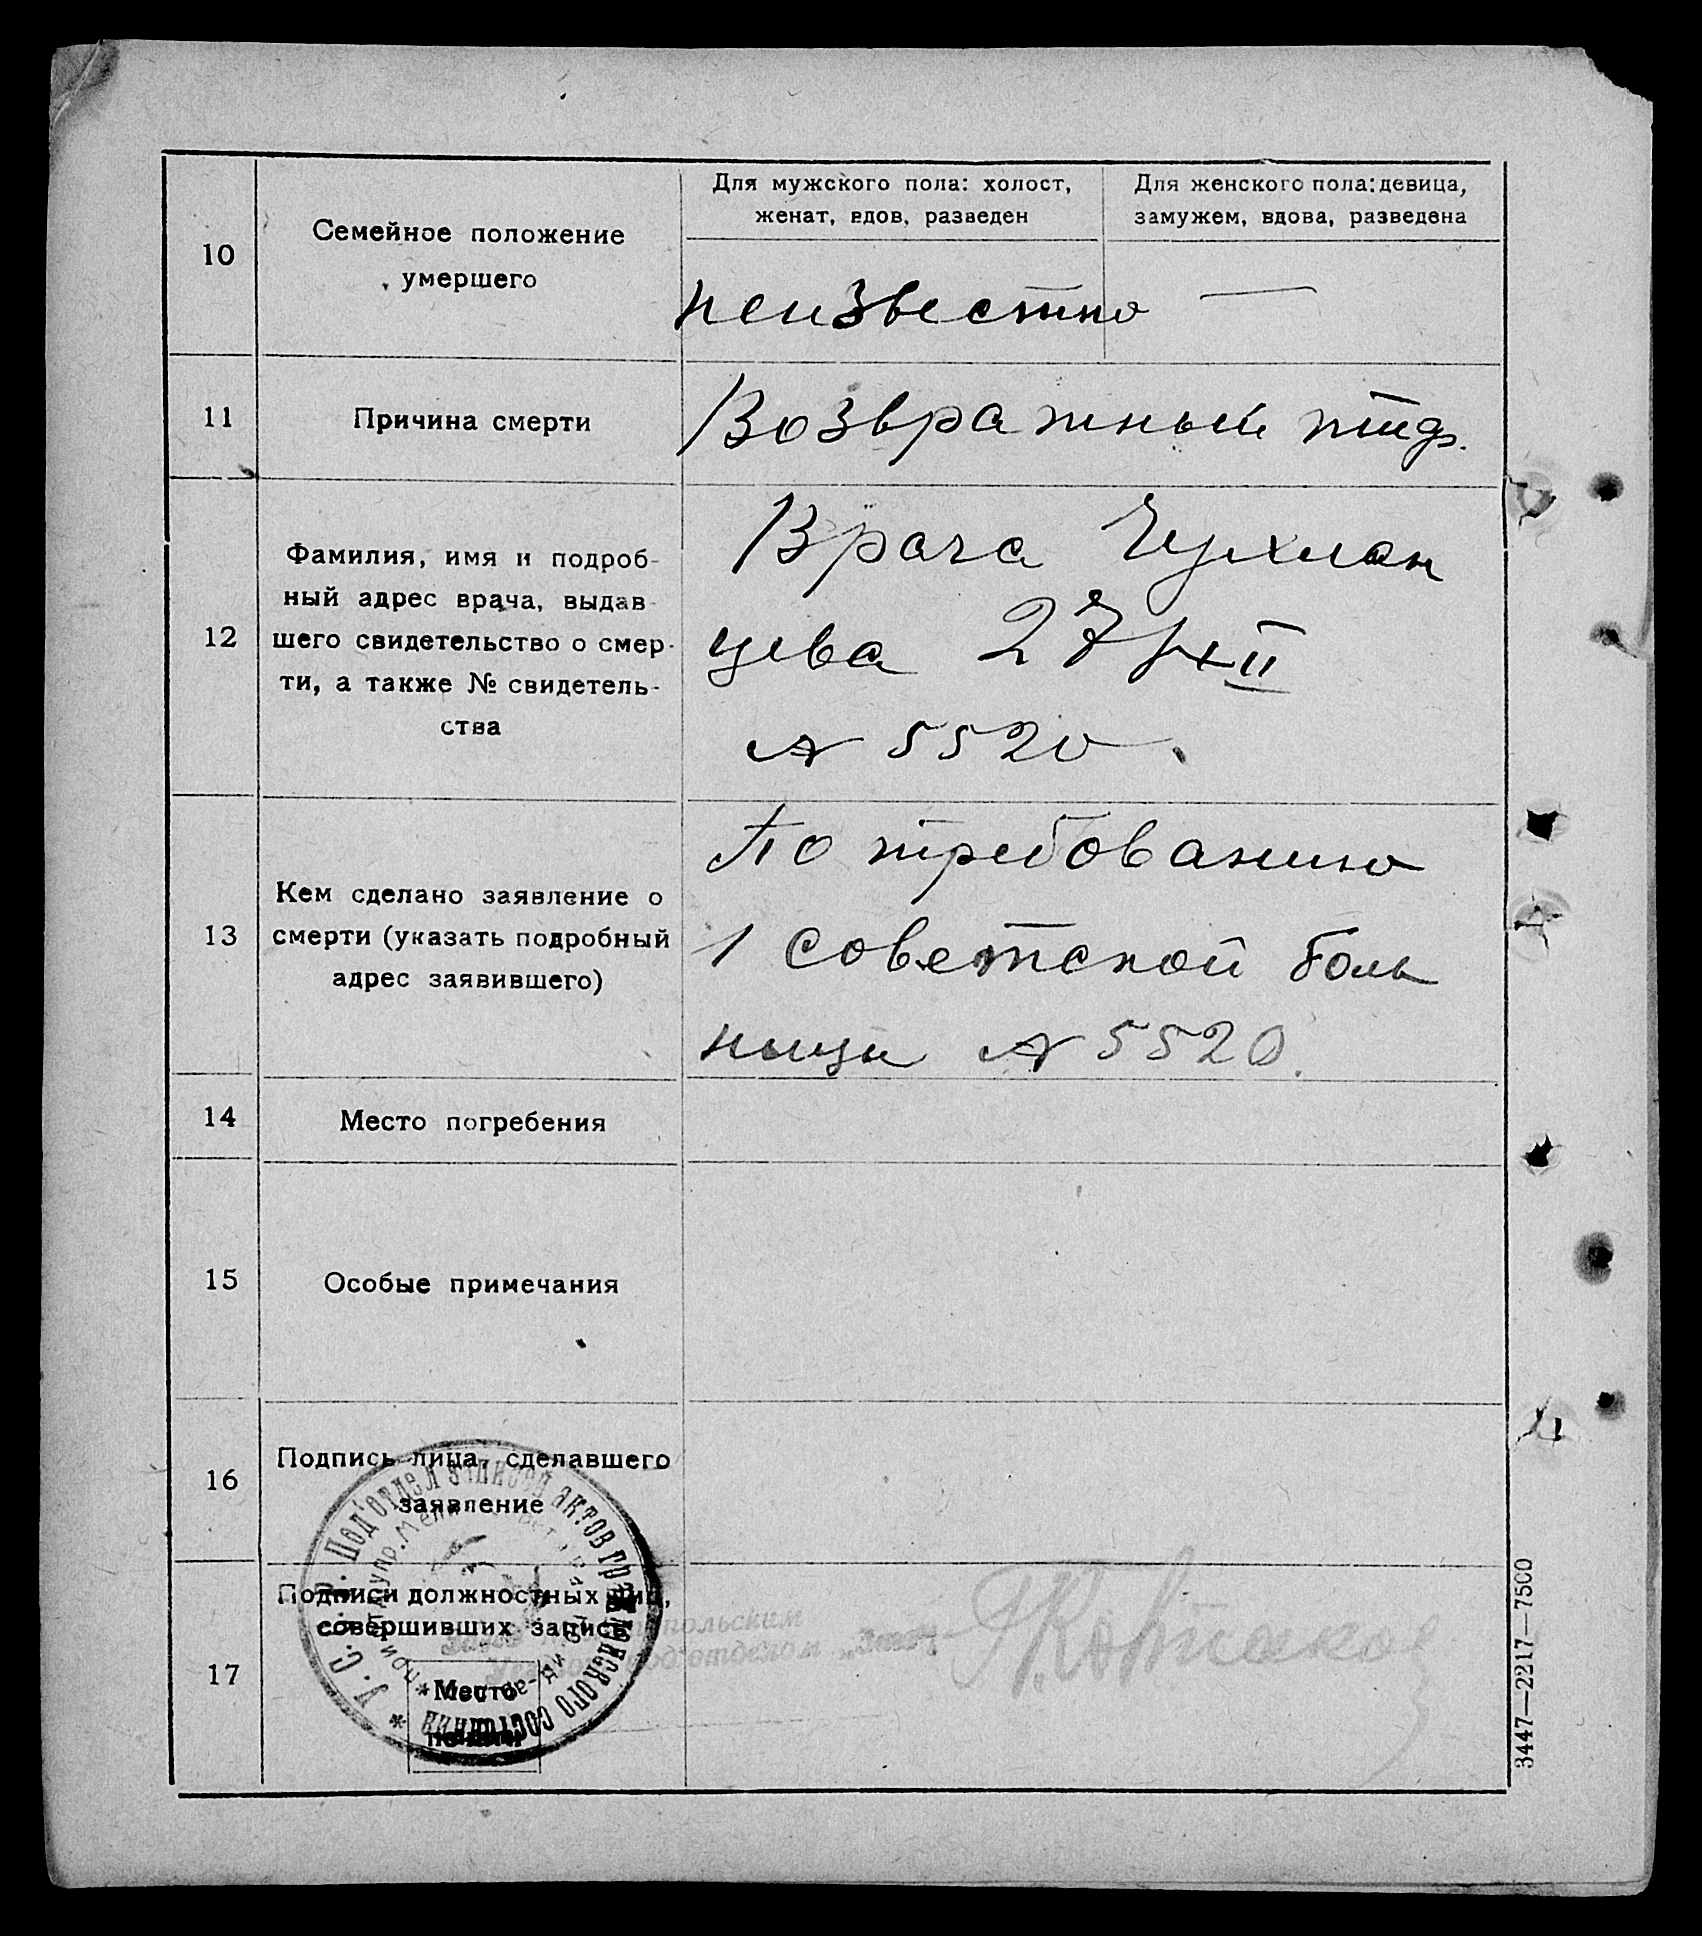 Для мужского пола: холост,
женат, вдов, разведен
Для женского пола: девица,
замужем, вдова, разведена
10
Семейное положение
умершего
неизвестно —
11
Причина смерти
Возвратный тиф.
12
Фамилия, имя и подроб-
ный адрес врача, выдав-
шего свидетельство о смер-
ти, а также № свидетель-
ства
Врача Чухман
цева 27/XII
№ 5520
13
Кем сделано заявление о
смерти (указать подробный
адрес заявившего)
По требованию
1 Советской боль
ницы № 5520.
14
Место погребения
15
Особые примечания
16
Подпись лица, сделавшего
заявление
17
Подписи должностных лиц,
совершивших запись
Место
печати
У. С. С. Р. Под'отдел записей актов гражданского состояния *
3447—2217—7500